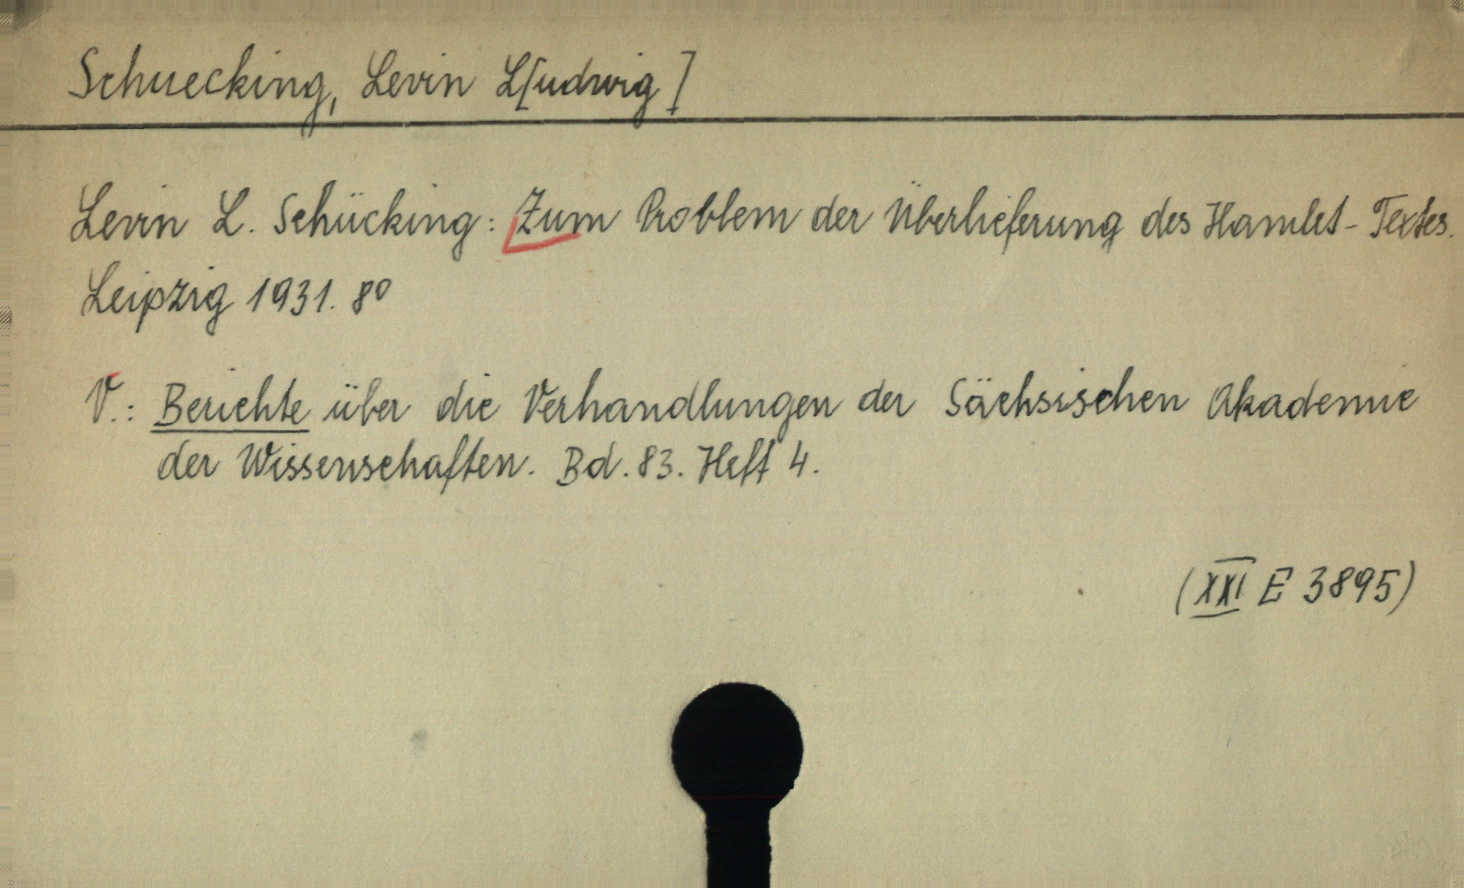 Schuecking, Levin L[udwig]
Levin L. Schücking: Zum Problem der Überlieferung des Hamlet-Textes.
Leipzig 1931. 8°
V.: Berichte über die Verhandlungen der Sächsischen Akademie
der Wissenschaften. Bd. 83. Heft 4.
(XXI E 3895)